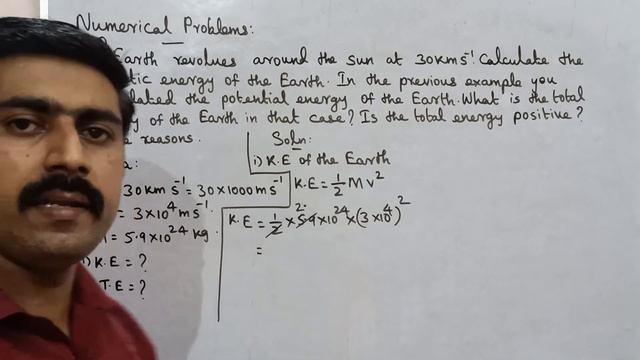 Numerical Problems:
Earth revolves around the sun at 30kms⁻¹. Calculate the
tic energy of the Earth. In the previous example you
lated the potential energy of the Earth. What is the total
y of the Earth in that case? Is the total energy positive?
e reasons.
Soln:
i) K.E of the Earth
30km s⁻¹ = 30×1000ms⁻¹
= 3×10⁴ms⁻¹
= 5.9×10²⁴ kg
i) K.E = ?
T.E = ?
K.E = 1/2 M v²
K.E = 1/2 × 5.9 × 10²⁴ × (3 × 10⁴)²
=